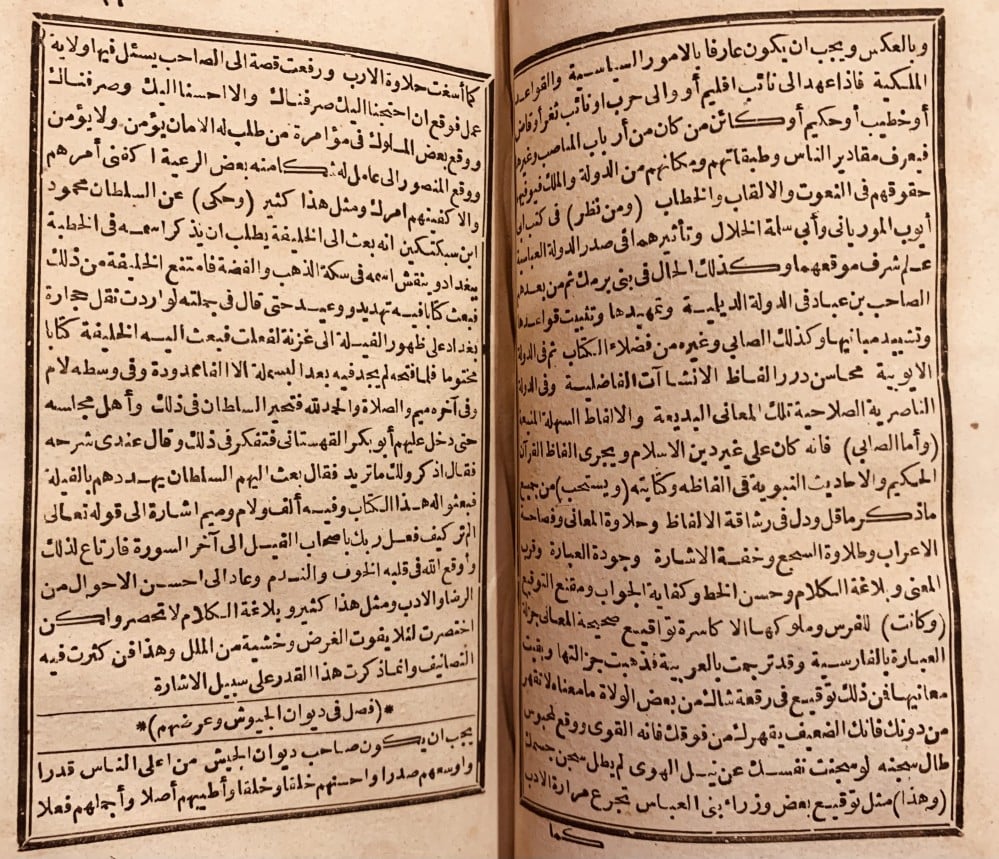 وبالعكس ويجب ان يكون عارفا بالامور السياسية والقواعد
الملكية فاذا عهد الى نائب اقليم أو والى حرب او نائب ثغر أو قاض
أو خطيب أو حكيم أو كائن من كان من أرباب المناصب وغيرهم
فيعرف مقادير الناس وطبقاتهم ومكانهم من الدولة والملك فيوفيهم
حقوقهم فى النعوت والالقاب والخطاب (ومن نظر) فى كتب ابى
أيوب الموريانى وأبى سلمة الخلال وتأثيرهما فى صدر الدولة العباسية
علم شرف موقعهما وكذلك الحال فى بنى برمك ثم من بعدهم
الصاحب بن عباد فى الدولة الديلمية وتمهيدها وتثبيت قواعدها
وتشييد مبانيها وكذلك الصابى وغيره من فضلاء الكتاب ثم فى الدولة
الايوبية محاسن درر الفاظ الانشاآت الفاضلية وفى الدولة
الناصرية الصلاحية تلك المعانى البديعة والالفاظ السهلة المنيعة
(وأما الصابى) فانه كان على غير دين الاسلام ويجرى الفاظ القرآن
الحكيم والاحاديث النبوية فى الفاظه وكتابته (ويستحب) من جميع
ماذكر ماقل ودل فى رشاقة الالفاظ وحلاوة المعانى وفصاحة
الاعراب وطلاوة السجع وخفة الاشارة وجودة العبارة وقرب
المعنى وبلاغة الكلام وحسن الخط وكفاية الجواب ومقنع التوقيع
(وكانت) للفرس وملوكها الاكاسرة تواقيع صحيحة المعانى جزلة
العبارة بالفارسية وقد ترجمت بالعربية فذهبت جزالتها وبقيت
معانيها فمن ذلك توقيع فى رقعة شاك من بعض الولاة مامعناه لاتقهر
من دونك فانك الضعيف يقهرك من فوقك فانه القوى ووقع لمحبوس
طال سجنه لو سجنت نفسك عن نيل الهوى لم يطل سجن جسمك
(وهذا) مثل توقيع بعض وزراء بنى العباس تجرع مرارة الادب
كما
كما أسغت حلاوة الارب ورفعت قصة الى الصاحب يسئل فيها ولاية
عمل فوقع ان احتجنا اليك صرفناك والا احسنا اليك وصرفناك
ووقع بعض الملوك فى مؤامرة من طلب له الامان يؤمن ولا يؤمن
ووقع المنصور الى عامل له شكا منه بعض الرعية اكفنى أمرهم
والا كفيتهم امرك ومثل هذا كثير (وحكى) عن السلطان محمود
ابن سبكتكين انه بعث الى الخليفة يطلب ان يذكر اسمه فى الخطبة
ببغداد وينقش اسمه فى سكة الذهب والفضة فامتنع الخليفة من ذلك
فبعث كتابا فيه تهديد ووعيد حتى قال فى جملته لو اردت نقل حجارة
بغداد على ظهور الفيلة الى غزنة لفعلت فبعث اليه الخليفة كتابا
مختوما فلما فتحه لم يجد فيه بعد البسملة الا الفا ممدودة وفى وسطه لام
وفى آخره ميم والصلاة والحمد لله فتحير السلطان فى ذلك وأهل مجلسه
حتى دخل عليهم أبو بكر القهستانى فتفكر فى ذلك وقال عندى شرحه
فقال اذكر ولك ماتريد فقال بعث اليهم السلطان يهددهم بالفيلة
فبعثوا له هذا الكتاب وفيه ألف ولام وميم اشارة الى قوله تعالى
الم تر كيف فعل ربك باصحاب الفيل الى آخر السورة فارتاع لذلك
وأوقع الله فى قلبه الخوف والندم وعاد الى احسن الاحوال من
الرضا والادب ومثل هذا كثير وبلاغة الكلام لاتحصر ولكن
اختصرت لئلا يفوت الغرض وخشية من الملل وهذا فن كثرت فيه
التصانيف وانما ذكرت هذا القدر على سبيل الاشارة
*(فصل فى ديوان الجيوش وعرضهم)*
يجب ان يكون صاحب ديوان الجيش من اعلى الناس قدرا
واوسعهم صدرا واحسنهم خلقا وخلقا وأطيبهم أصلا وأجملهم فعلا